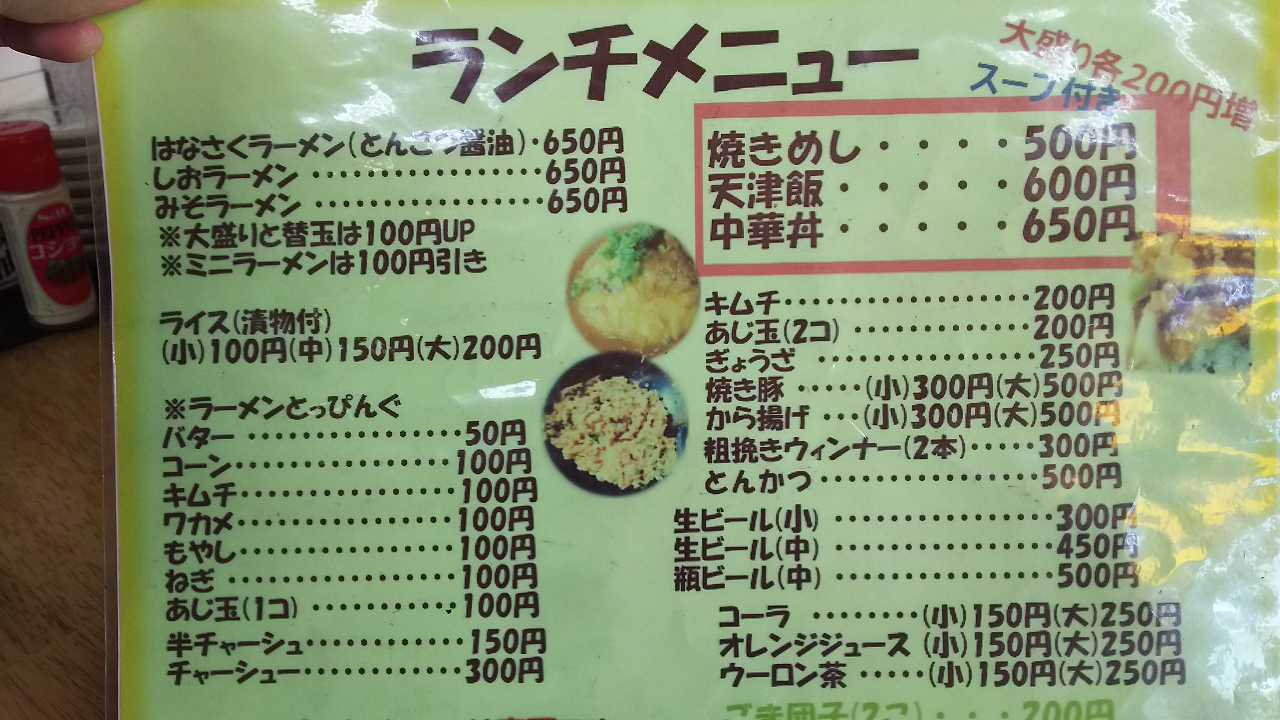 ランチメニュー
大盛り各200円増
スープ付き
はなさくラーメン(とんこつ醤油)・650円
しおラーメン ・・・・・・・・・・・・・・・・・650円
みそラーメン ・・・・・・・・・・・・・・・・・650円
※大盛りと替玉は100円UP
※ミニラーメンは100円引き
ライス(漬物付)
(小)100円(中)150円(大)200円
※ラーメンとっぴんぐ
バター ・・・・・・・・・・・・・・・・50円
コーン・・・・・・・・・・・・・・・・100円
キムチ・・・・・・・・・・・・・・・・100円
ワカメ・・・・・・・・・・・・・・・・100円
もやし・・・・・・・・・・・・・・・・100円
ねぎ ・・・・・・・・・・・・・・・・・100円
あじ玉(1コ) ・・・・・・・・・・・100円
半チャーシュ・・・・・・・・・・・・150円
チャーシュー・・・・・・・・・・・・300円
焼きめし・・・・500円
天津飯・・・・・600円
中華丼・・・・・650円
キムチ・・・・・・・・・・・・・・・・・・200円
あじ玉(2コ) ・・・・・・・・・・・・・200円
ぎょうざ ・・・・・・・・・・・・・・・・250円
焼き豚 ・・・・・(小)300円(大)500円
から揚げ ・・・(小)300円(大)500円
粗挽きウィンナー(2本)・・・・・300円
とんかつ・・・・・・・・・・・・・・・・500円
生ビール(小) ・・・・・・・・・・・・・・・・300円
生ビール(中) ・・・・・・・・・・・・・・・・450円
瓶ビール(中) ・・・・・・・・・・・・・・・・500円
コーラ ・・・・・・・・(小)150円(大)250円
オレンジジュース (小)150円(大)250円
ウーロン茶 ・・・・・(小)150円(大)250円
ごま団子(2こ)・・・200円